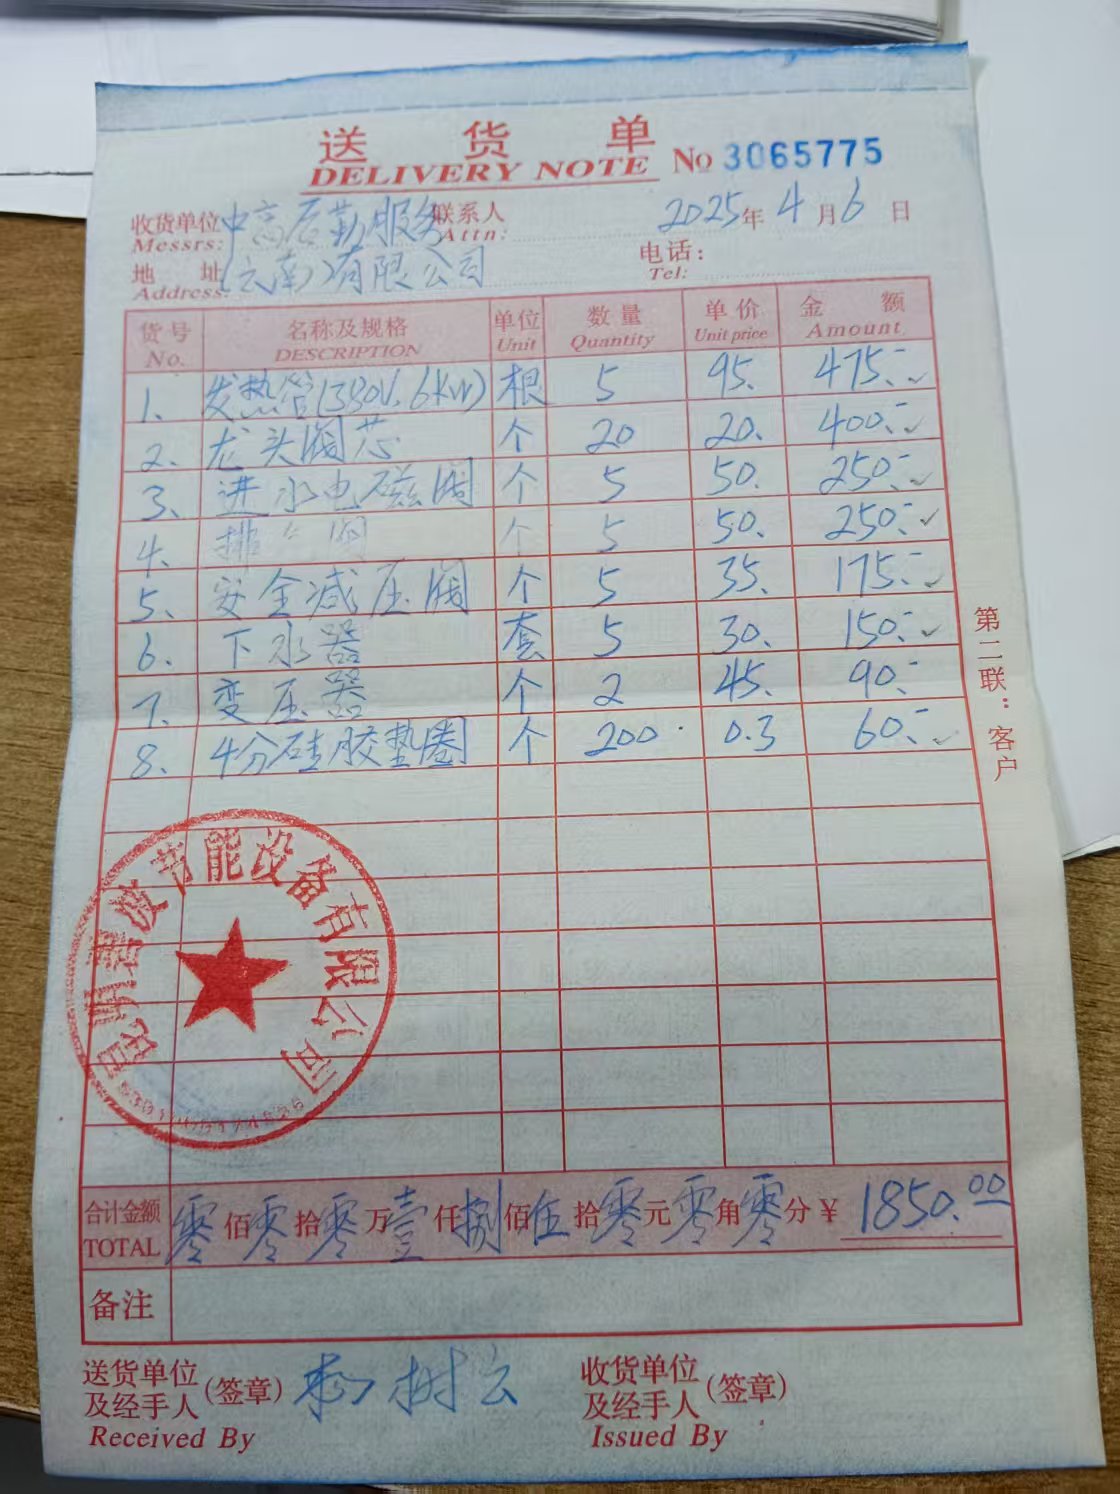 送货单
DELIVERY NOTE No 3065775
收货单位 中高后勤服务 联系人 2025年4月6日
Messrs: Attn:
地址 (云南)有限公司 电话:
Address: Tel:
货号 名称及规格 单位 数量 单价 金额
No. DESCRIPTION Unit Quantity Unit price Amount
1、 发热管(380V.6KW) 根 5 95. 475.-
2、 龙头阀芯 个 20 20. 400.-
3、 进水电磁阀 个 5 50. 250.-
4、 排气阀 个 5 50. 250.-
5、 安全减压阀 个 5 35. 175.-
6. 下水器 套 5 30. 150.-
7. 变压器 个 2 45. 90.-
8. 4分硅胶垫圈 个 200 0.3 60.-
第二联:客户
昆明 能设备有限公司
合计金额 零佰零拾零万壹仟捌佰伍拾零元零角零分 ¥ 1850.00
TOTAL
备注
送货单位及经手人(签章) 树云
Received By
收货单位及经手人(签章)
Issued By